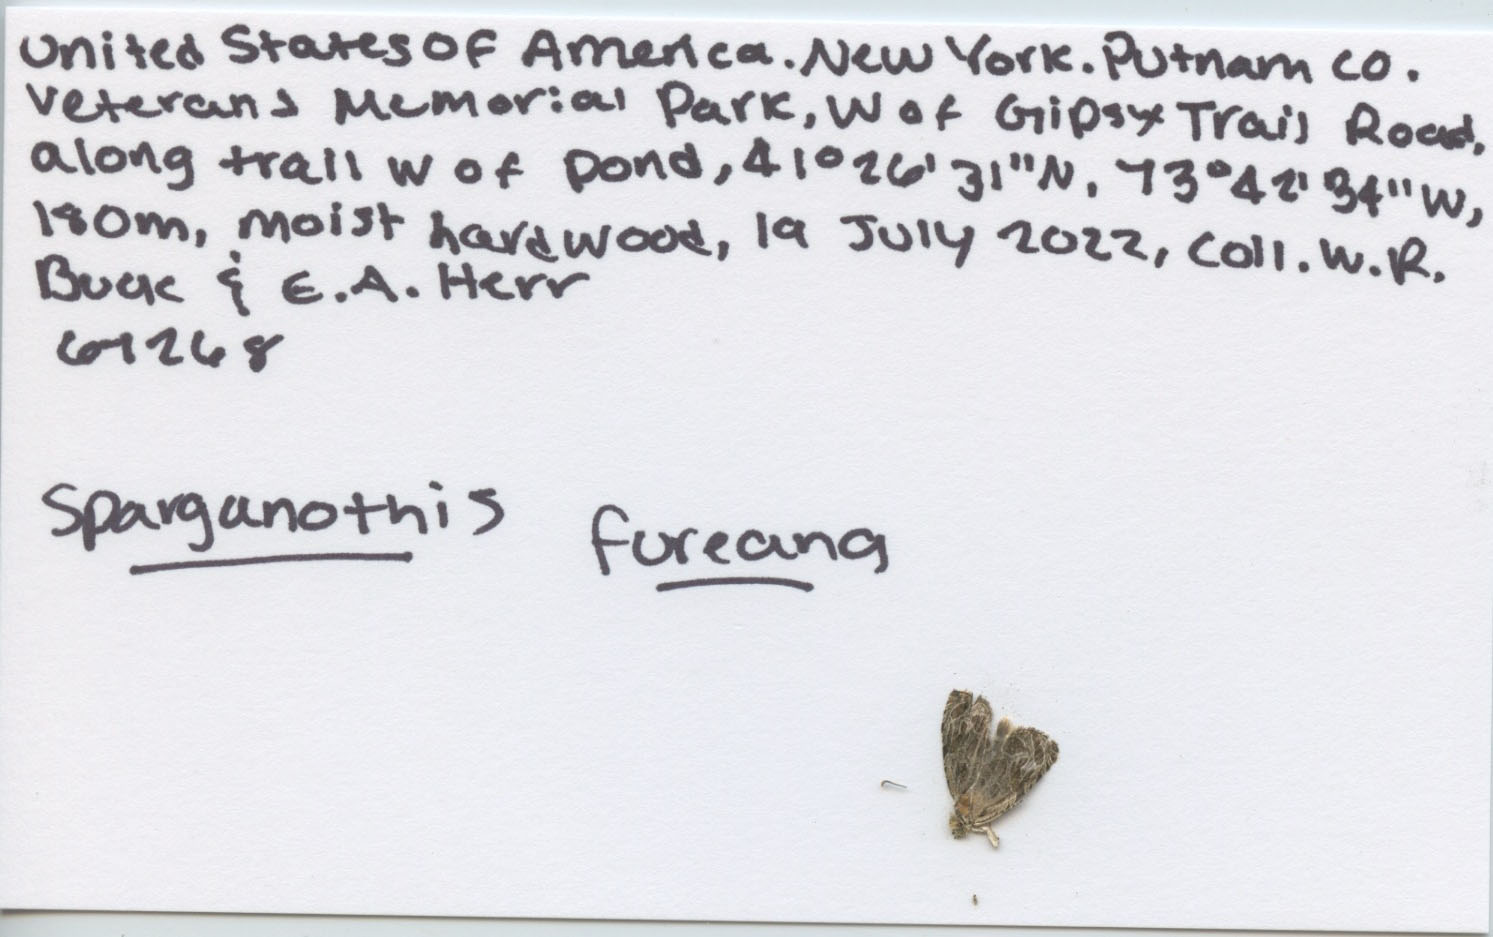 United States of America. New York. Putnam Co.
Veterans Memorial Park, W of Gipsy Trail Road,
along trail W of pond, 41°26'31"N, 73°42'34"W,
180m, moist hardwood, 19 July 2022, Coll. W.R.
Buck & E.A. Herr
67268
Sparganothis fureana